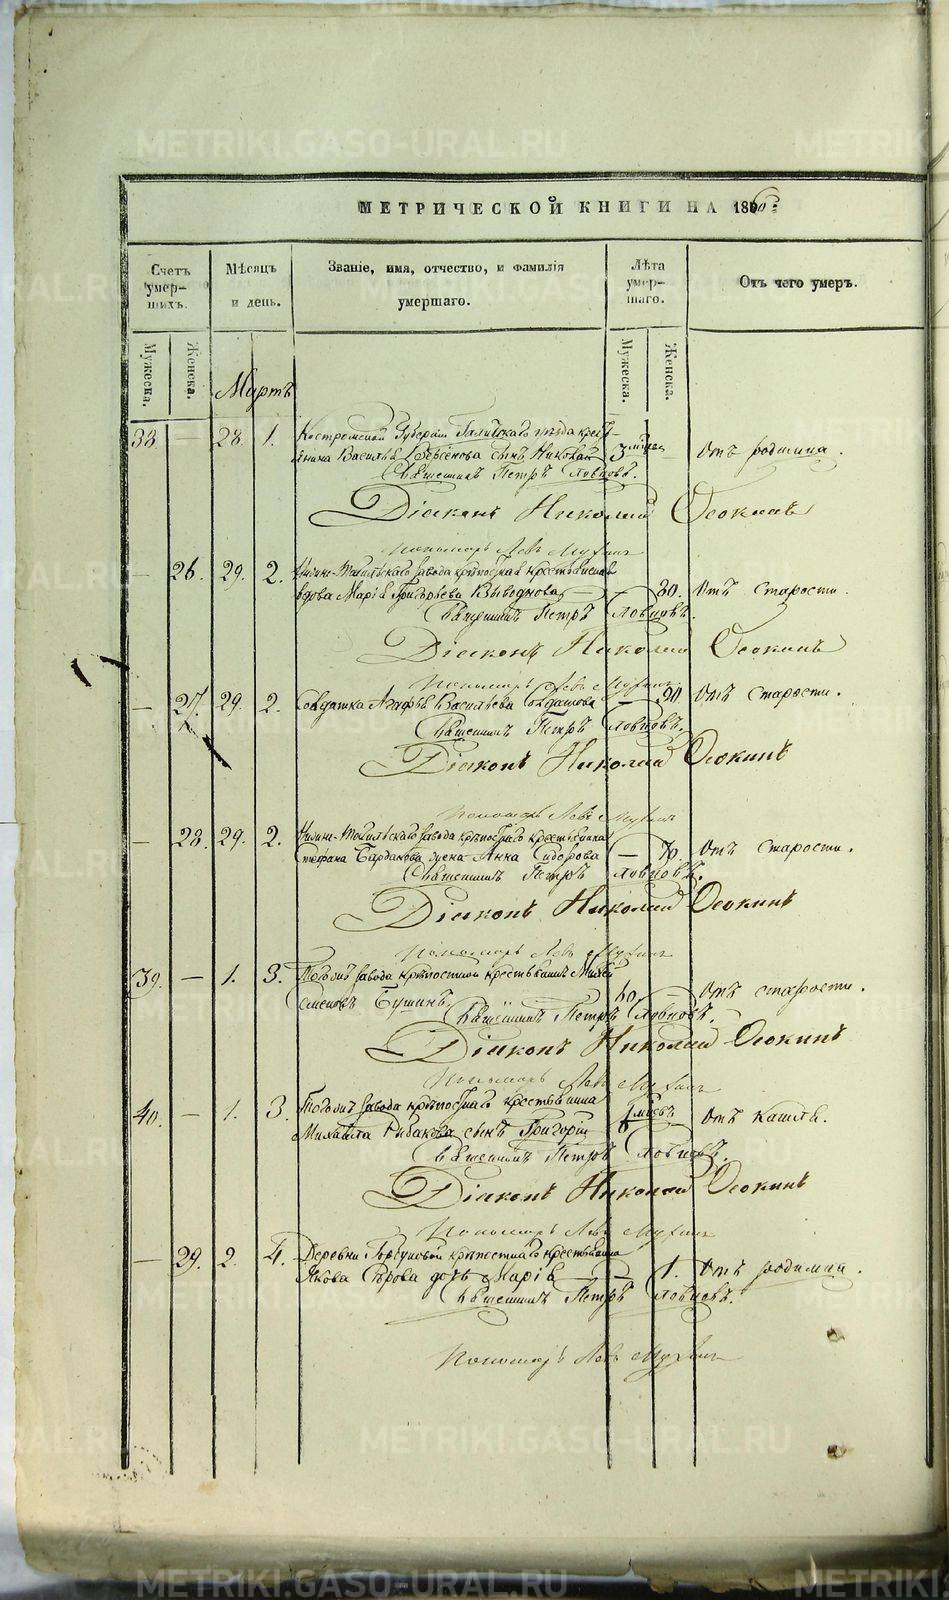 МЕТРИЧЕСКОЙ КНИГИ НА 1860:
Счетъ умер-шихъ.
Мѣсяцъ и день.
Званіе, имя, отчество, и фамилія умершаго.
Лѣта умер-шаго.
Отъ чего умеръ.
Мужеска. Женска.
Мужеска. Женска.
Мартъ
38 — 28. 1. Костромской Губерніи Галичскаго уѣзда кресть-
янина Василья сынъ Николай 3 мѣсяц. — Отъ родимца.
Священникъ Петръ Ловцовъ.
Діаконъ Николай Осокинъ
Пономарь Левъ Мухинъ
— 26. 29. 2. Нижне-Тагильскаго завода крѣпостная крестьянская
вдова Марія Григорьева — 80. Отъ старости.
Священникъ Петръ Ловцовъ.
Діаконъ Николай Осокинъ
Пономарь Левъ Мухинъ
— 27. 29. 2. Солдатка Агафья Васильева — 90 Отъ старости.
Священникъ Петръ Ловцовъ.
Діаконъ Николай Осокинъ
Пономарь Левъ Мухинъ
— 28. 29. 2. Нижне-Тагильскаго завода крѣпостнаго крестьянина
Стефана Бардакова жена Анна Сидорова — 70. Отъ старости.
Священникъ Петръ Ловцовъ.
Діаконъ Николай Осокинъ
Пономарь Левъ Мухинъ
39. — 1. 3. Тогожъ завода крѣпостный крестьянинъ
Семеновъ 60. — Отъ старости.
Священникъ Петръ Ловцовъ.
Діаконъ Николай Осокинъ
Пономарь Левъ Мухинъ
40. — 1. 3. Тогожъ завода крѣпостнаго крестьянина
Михаила Рыбакова сынъ Григорій мѣсяц. Отъ кашля.
Священникъ Петръ Ловцовъ.
Діаконъ Николай Осокинъ
Пономарь Левъ Мухинъ
— 29. 2. 4. Деревни крѣпостнаго крестьянина
Якова дочь Марія — 1. Отъ родимца.
Священникъ Петръ Ловцовъ.
Пономарь Левъ Мухинъ
METRIKI.GASO-URAL.RU